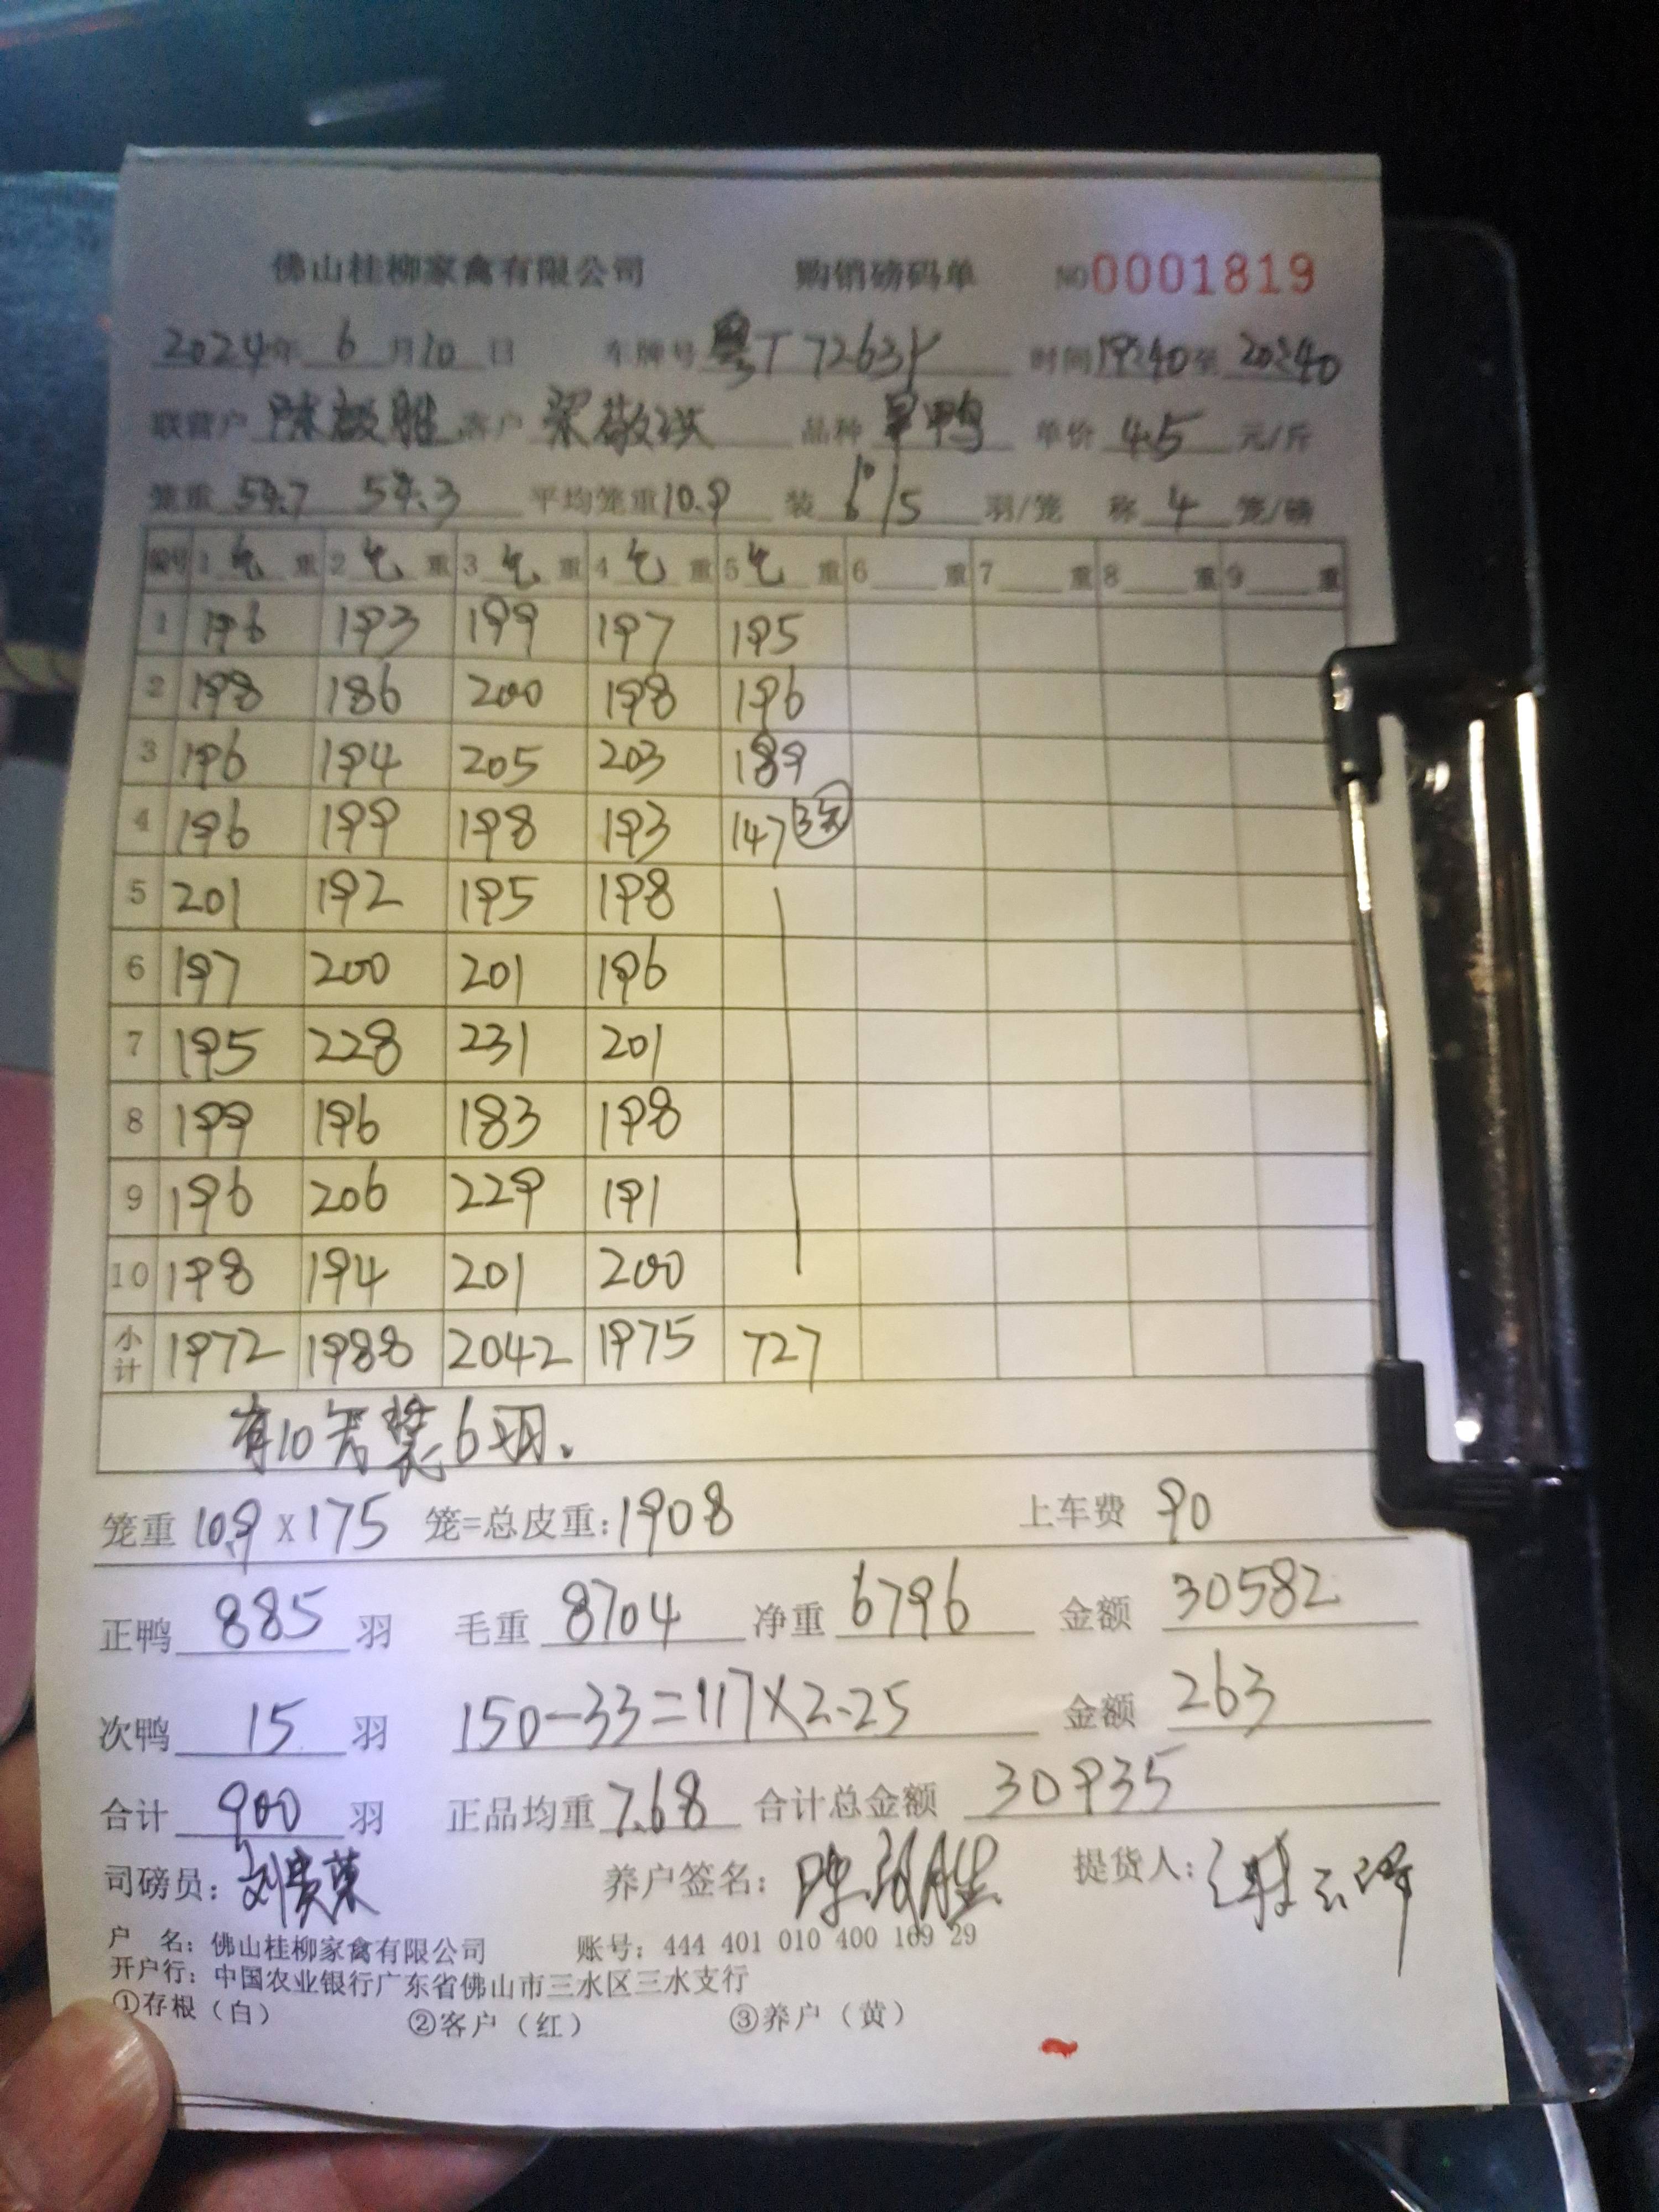 佛山桂柳家禽有限公司 购销磅码单 NO 0001819
2024年 6 月 10 日 车牌号 粤T 7263Y 时间 19:40 至 20:40
联营户 陈毅胜 客户 梁敬洪 品种 旱鸭 单价 4.5 元/斤
笼重 54.7 54.3 平均笼重 10.9 装 6/5 羽/笼 称 4 笼/磅
编号 1 毛 重 2 毛 重 3 毛 重 4 毛 重 5 毛 重 6 重 7 重 8 重 9 重
1 196 193 199 197 195
2 198 186 200 198 196
3 196 194 205 203 189
4 196 199 198 193 147 3笼
5 201 192 195 198
6 197 200 201 196
7 195 228 231 201
8 199 196 183 198
9 196 206 229 191
10 198 194 201 200
小计 1972 1988 2042 1975 727
有10笼装6羽.
笼重 10.9 X 175 笼=总皮重: 1908 上车费 90
正鸭 885 羽 毛重 8704 净重 6796 金额 30582
次鸭 15 羽 150-33=117X2.25 金额 263
合计 900 羽 正品均重 7.68 合计总金额 30935
司磅员: 刘贵荣 养户签名: 陈毅胜 提货人:
户 名: 佛山桂柳家禽有限公司 账号: 444 401 010 400 169 29
开户行: 中国农业银行广东省佛山市三水区三水支行
①存根（白） ②客户（红） ③养户（黄）